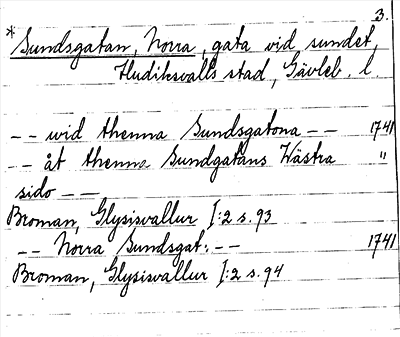 3.
*Sundsgatan, Norra, gata vid sundet,
Hudiksvalls stad, Gävleb. l.
-- wid thenna Sundsgatona -- 1741
-- åt thenna Sundgatans Wästra "
sido --
Broman, Glysisvallur I:2 s. 93
-- Norra Sundsgat: -- 1741
Broman, Glysisvallur I:2 s. 94